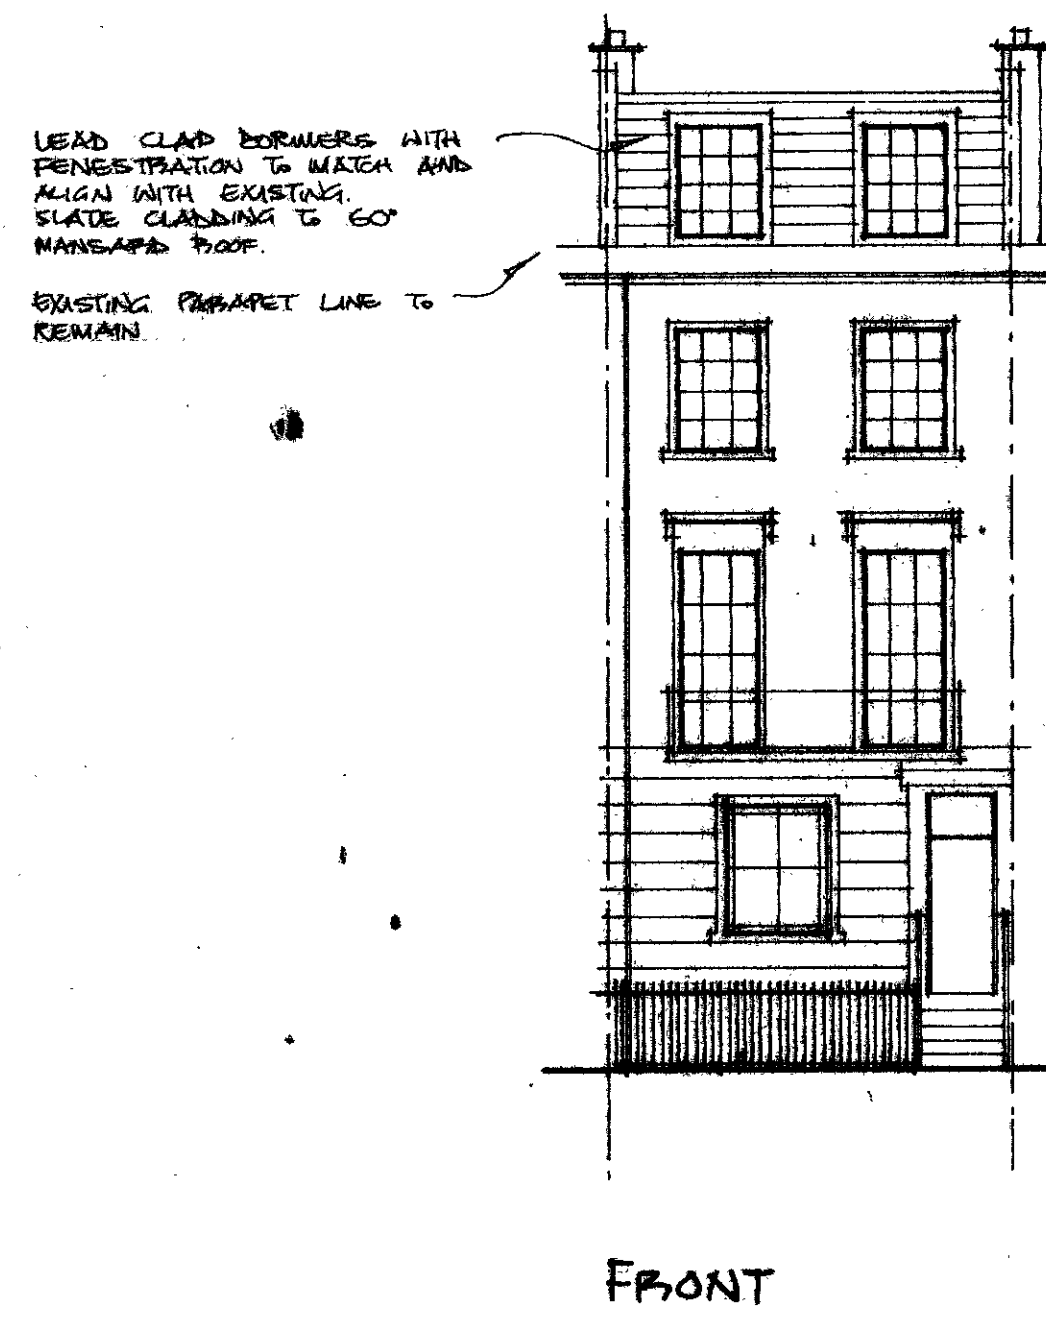 LEAD CLAD DORMERS WITH
FENESTRATION TO MATCH AND
ALIGN WITH EXISTING.
SLATE CLADDING TO 60°
MANSARD ROOF.
EXISTING PARAPET LINE TO
REMAIN
FRONT